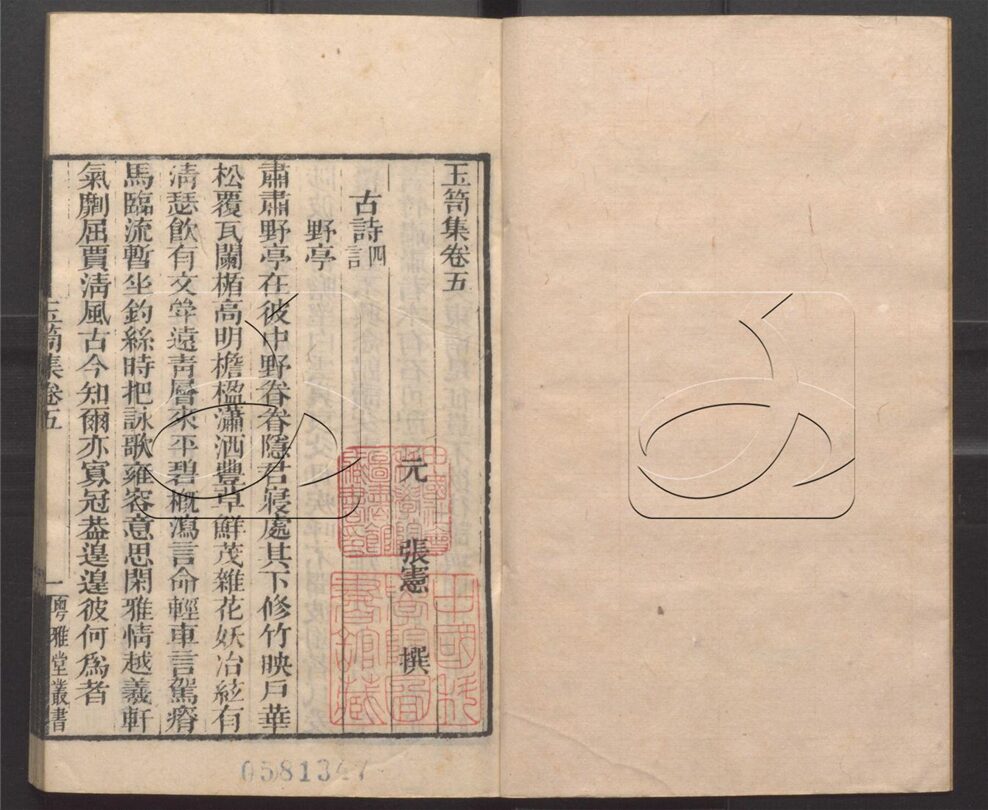 玉笥集卷五
元　張憲　撰
古詩四言
野亭
肅肅野亭在彼中野眷眷隱君寢處其下修竹映戶華
松覆瓦闌楯高明檐楹瀟洒豐草鮮茂雜花妖冶絃有
淸瑟飮有文斝遠靑層來平碧槪瀉言命輕車言駕瘠
馬臨流暫坐釣絲時把詠歌雍容意思閑雅情越羲軒
氣劘屈賈淸風古今知爾亦寡冠葢遑遑彼何爲者
玉笥集卷五
一
粵雅堂叢書
0581347